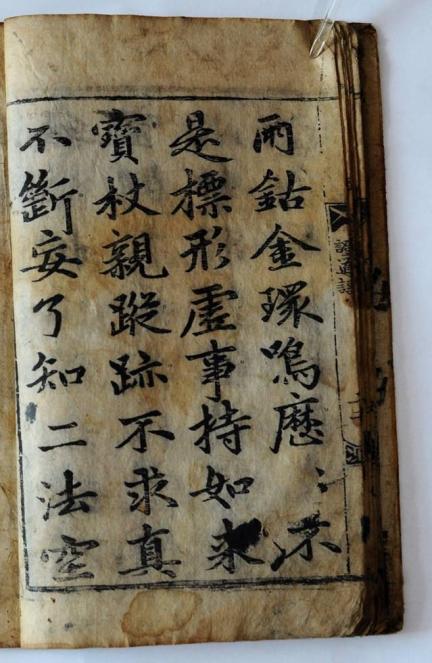 兩鈷金環鳴歷〻不
是標形虛事持如來
寶杖親蹤跡不求真
不斷妄了知二法空
證道謌